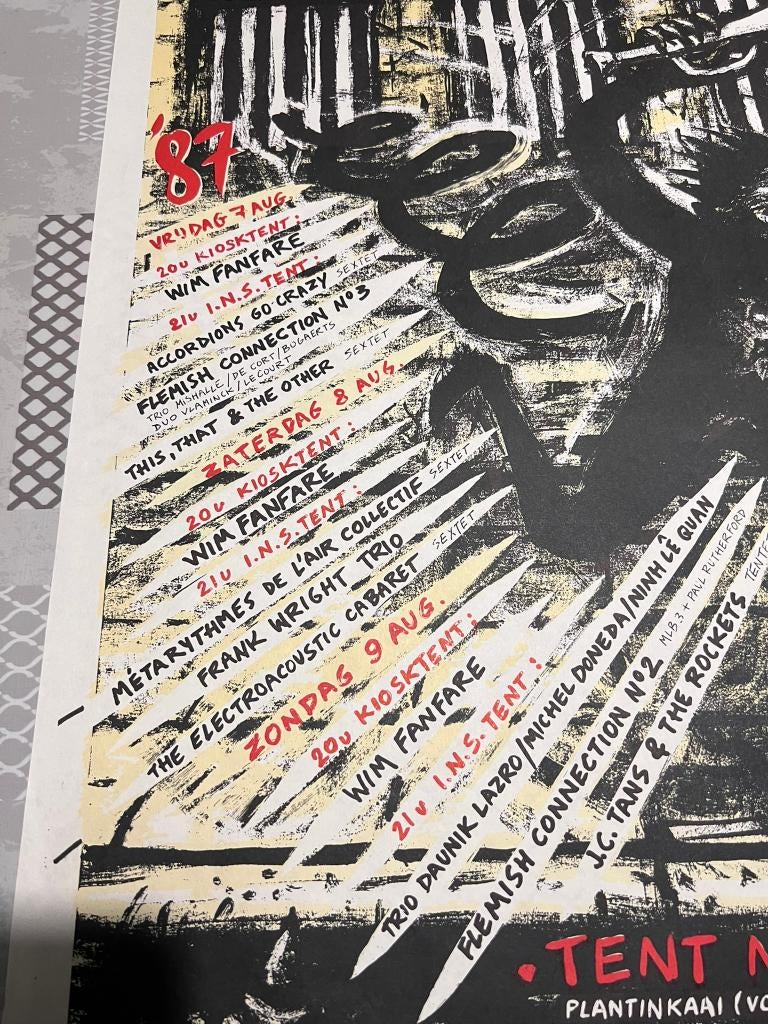 '87
VRIJDAG 7 AUG.
20U KIOSKTENT:
WIM FANFARE
21U I.N.S. TENT:
ACCORDIONS GO CRAZY SEXTET
FLEMISH CONNECTION Nº3
TRIO MISHALLE/DE CORT/BOGAERTS
DUO VLAMINCK/LECOURT
THIS, THAT & THE OTHER SEXTET
ZATERDAG 8 AUG.
20U KIOSKTENT:
WIM FANFARE
21U I.N.S. TENT:
MÉTARYTHMES DE L'AIR COLLECTIF SEXTET
FRANK WRIGHT TRIO
THE ELECTROACOUSTIC CABARET SEXTET
ZONDAG 9 AUG.
20U KIOSKTENT:
WIM FANFARE
21U I.N.S. TENT:
TRIO DAUNIK LAZRO/MICHEL DONEDA/NINH LÊ QUAN
FLEMISH CONNECTION Nº2 MLB.3 + PAUL RUTHERFORD
J.C. TANS & THE ROCKETS
• TENT
PLANTINKAAI